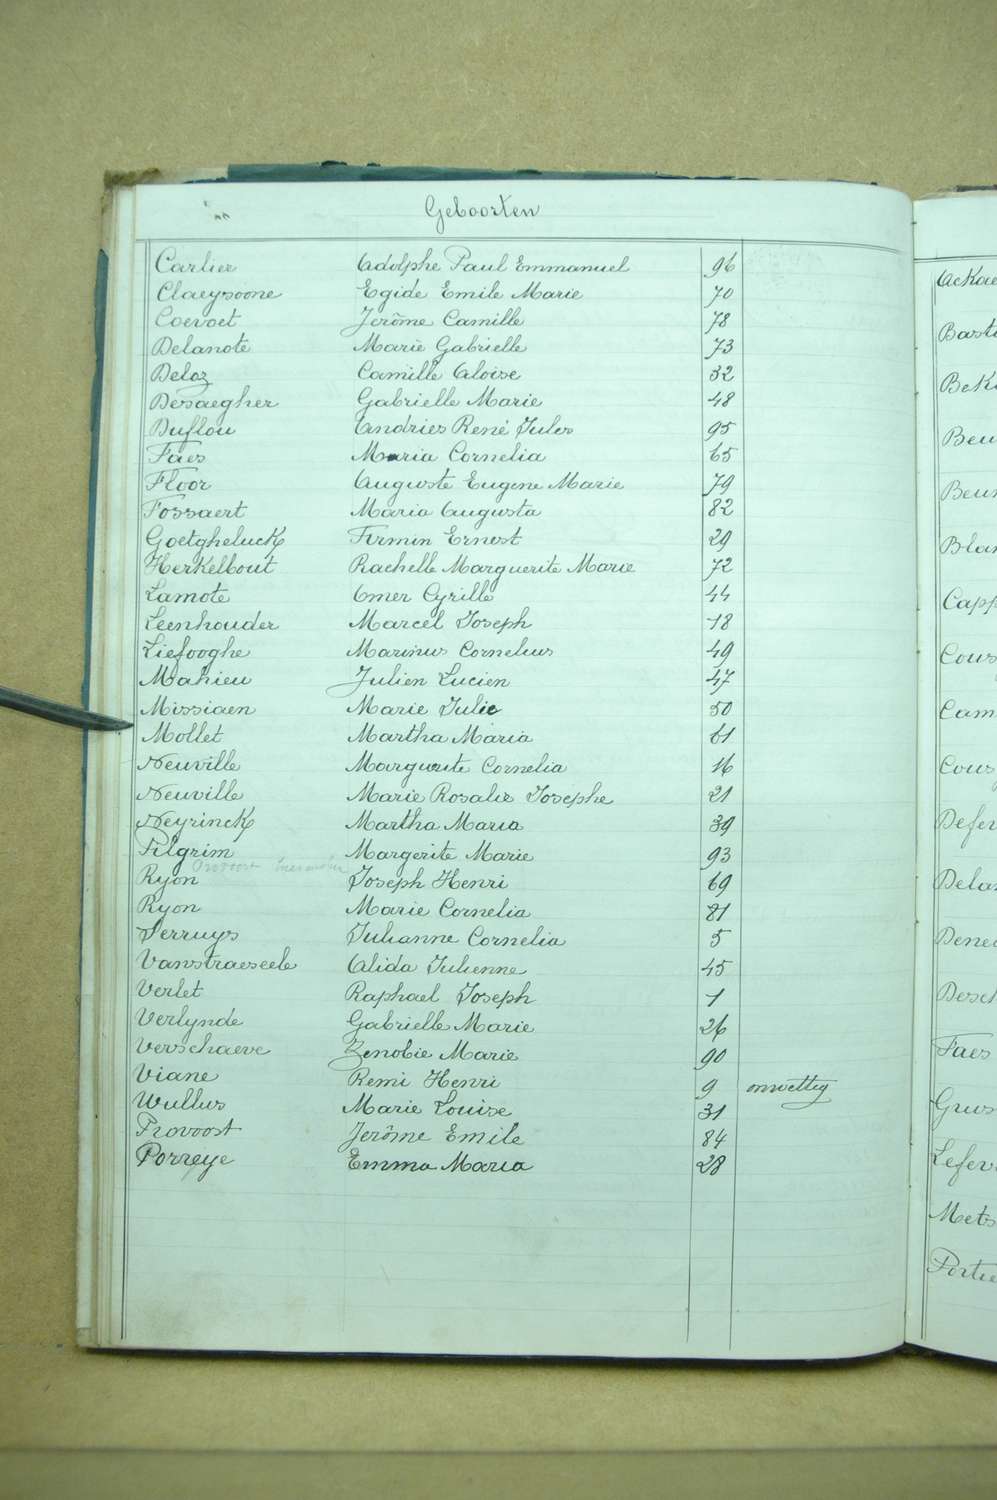 Geboorten
Carlier Adolphe Paul Emmanuel 96
Claeysoone Egide Emile Marie 70
Coevoet Jerôme Camille 78
Delanote Marie Gabrielle 73
Deloz Camille Aloise 32
Desaegher Gabrielle Marie 48
Duflou Andries René Jules 95
Faes Maria Cornelia 65
Floor Auguste Eugene Marie 79
Fossaert Maria Augusta 82
Goetgheluck Firmin Ernest 29
Herkelbout Rachelle Marguerite Marie 72
Lamote Omer Cyrille 44
Leenhouder Marcel Joseph 18
Liefooghe Marinus Cornelius 49
Mahieu Julien Lucien 47
Missiaen Marie Julie 50
Mollet Martha Maria 61
Neuville Marguerite Cornelia 16
Neuville Marie Rosalie Josephe 21
Neyrinck Martha Maria 39
Pilgrim Margerite Marie 93
Provoost
Ryon Joseph Henri 69
Ryon Marie Cornelia 81
Serruys Julianne Cornelia 5
Vanstraeseele Alida Julienne 45
Verlet Raphael Joseph 1
Verlynde Gabrielle Marie 26
Verschaeve Zenobie Marie 90
Viane Remi Henri 9 onwettig
Wullus Marie Louise 31
Provoost Jerôme Emile 84
Porreye Emma Maria 28
Faes